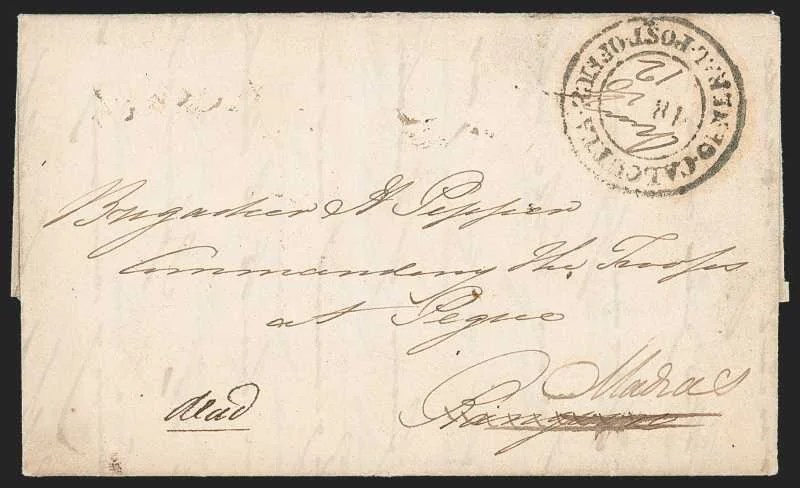 GENERAL POST OFFICE
CALCUTTA
18
12
Brigadier H Pepper
Commanding the Troops
at Pegue
Madras
Rangoon
dead